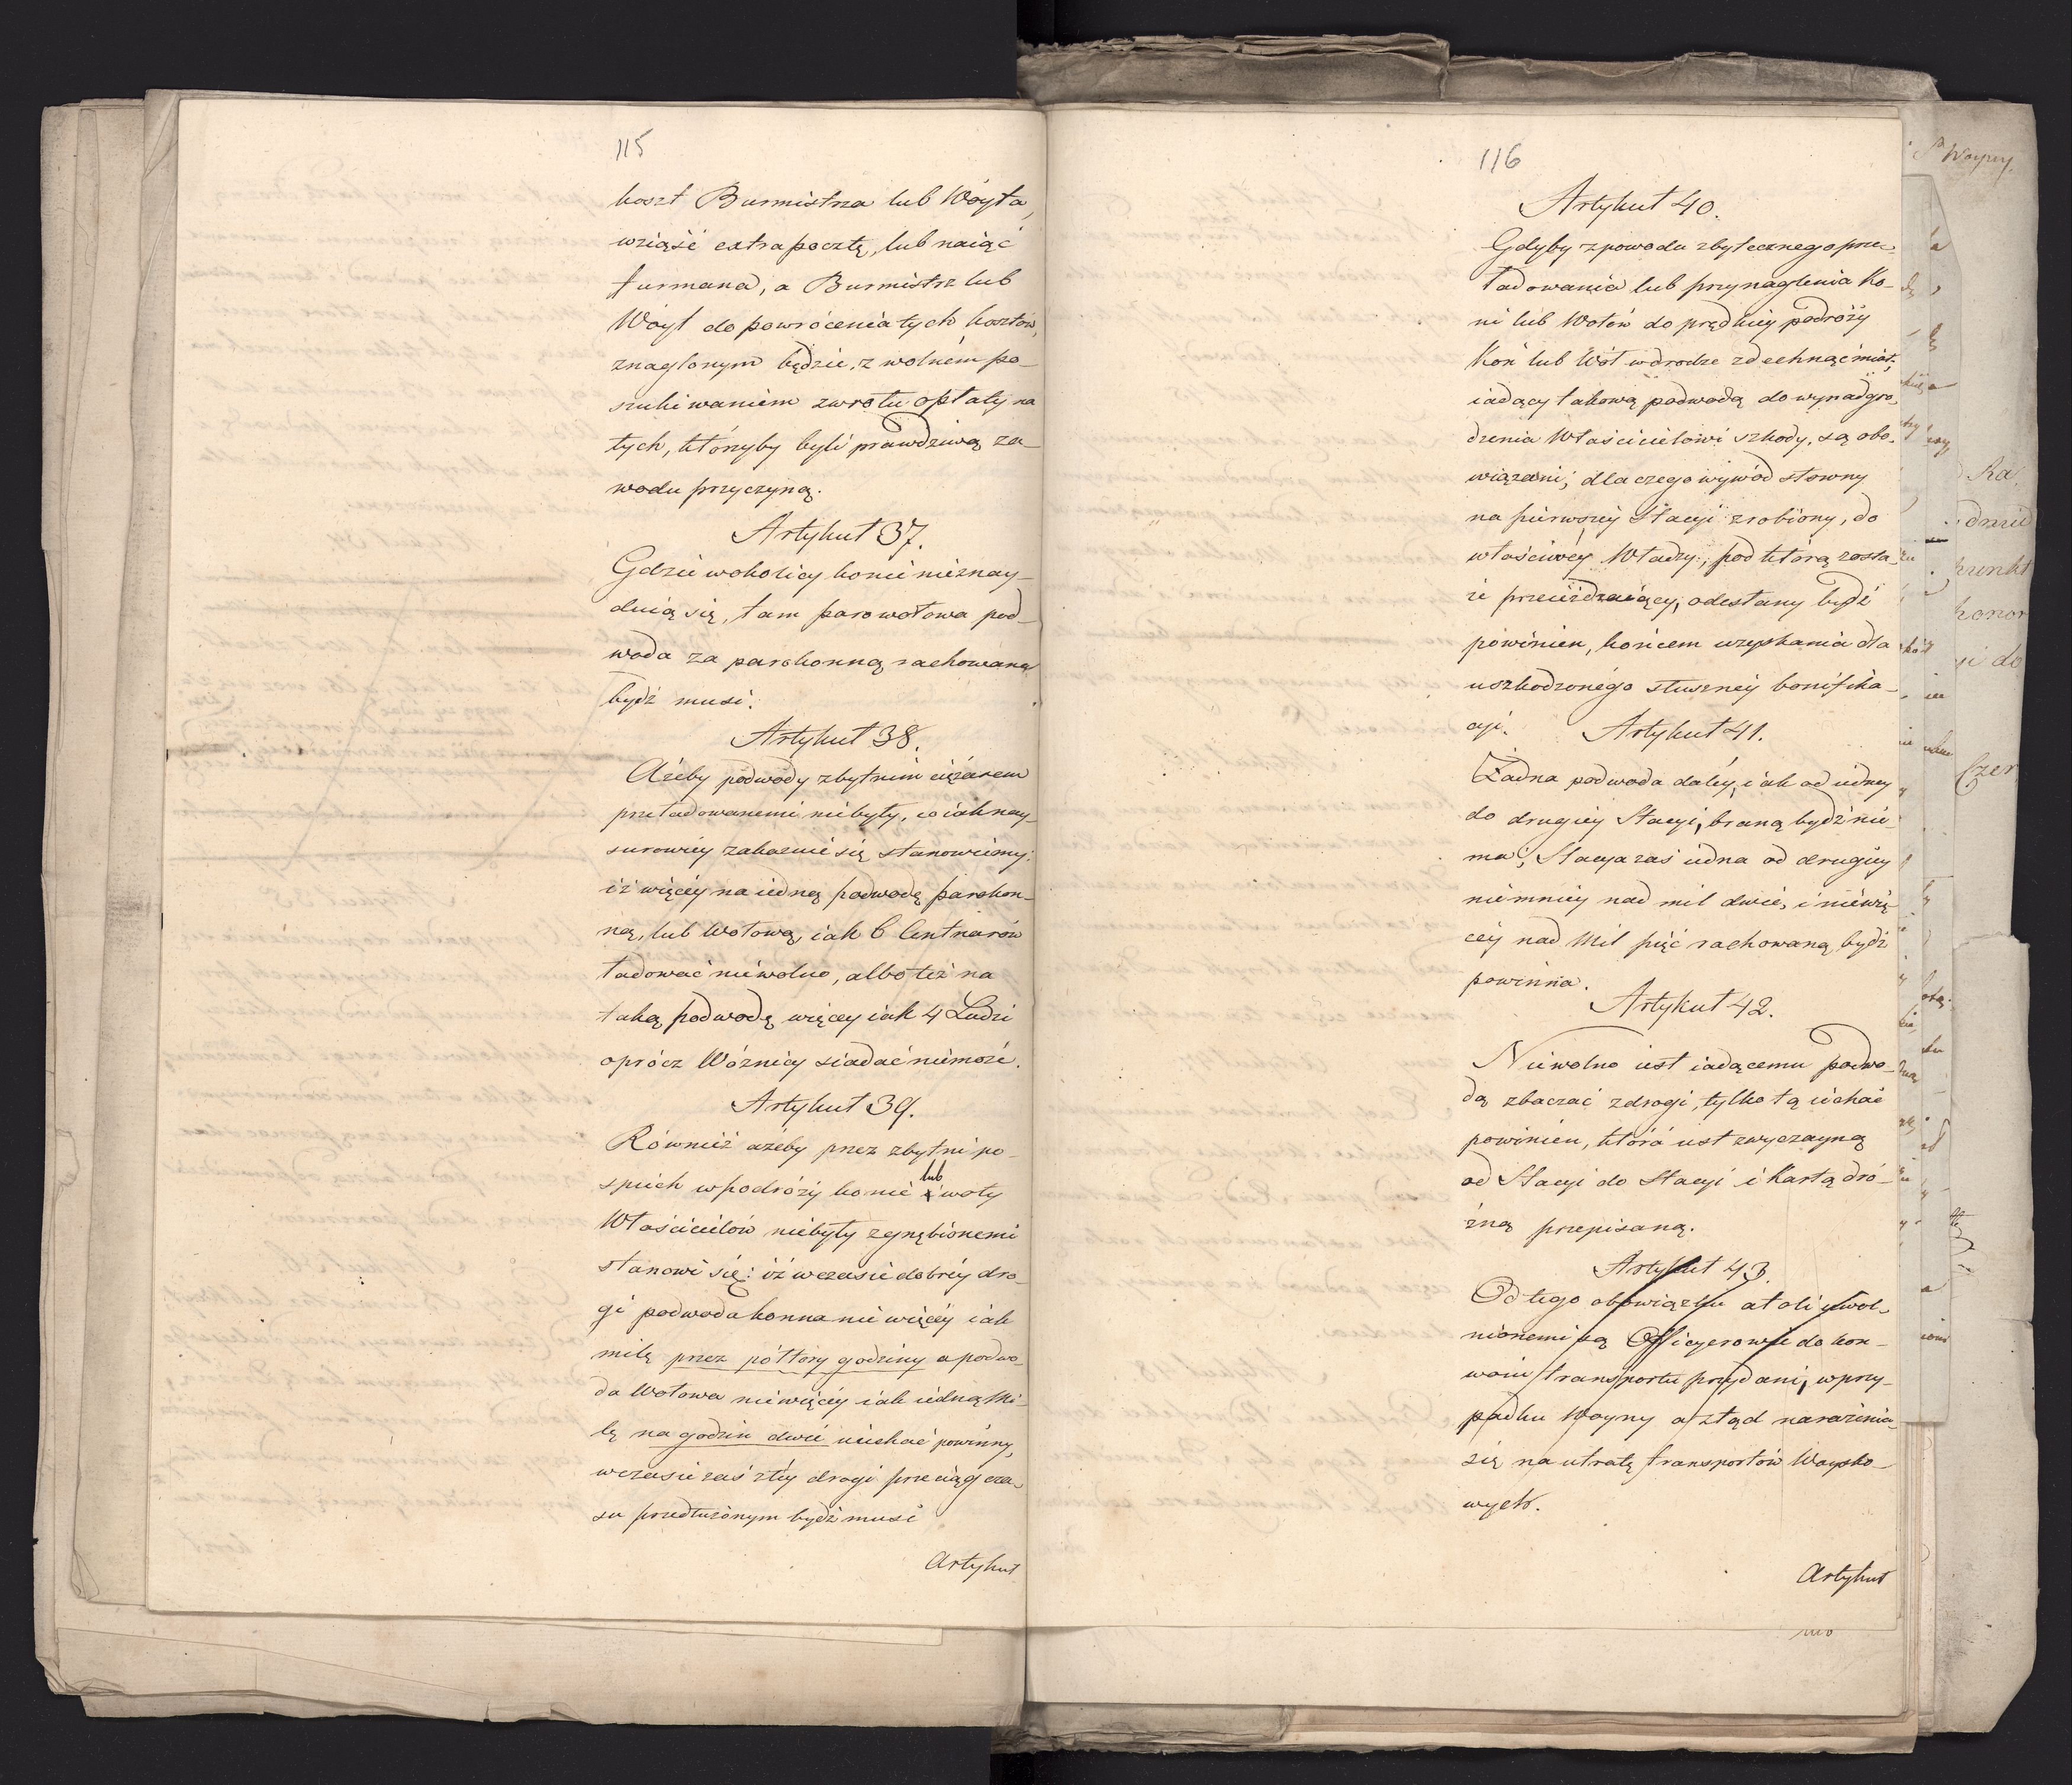 115
koszt Burmistrza lub Wóyta,
wziąść extrapocztę, lub naiąć
furmana, a Burmistrz lub
Wóyt do powrócenia tych kosztów,
znaglonym będzie, z wolnem po-
szukiwaniem zwrotu opłaty na
tych, którzyby byli prawdziwą za-
wodu przyczyną.
Artykuł 37.
Gdzie wokolicy konie nieznay-
duią się, tam parowołowa pod-
woda za parokonną rachowaną
bydź musi.
Artykuł 38.
Ażeby podwody zbytnim ciężarem
przeładowanemi niebyły, co iaknay-
surowiéy zakazuie się stanowiemy:
iż więcéy na iedną podwodę parokon-
ną, lub Wołową, iak 6 Centnarów
ładować niewolno, albo téż na
taką podwodę więcey iak 4 Ludzi
oprócz Woźnicy siadać niemoże.
Artykuł 39.
Również ażeby przez zbytni po-
spiech wpodróży konie lub woły
Właścicielów niebyły zgnębionemi
stanowi się: iż wczasie dobréy dro-
gi podwoda konna nie więcéy iak
milę przez półtory godziny a podwo-
da Wołowa niewięcéy iak iedną Mi-
lę na godzin dwie uiechać powinny,
wczasie zaś złéy drogi przeciąg cza-
su przedłużonym bydź musi
Artykuł
116
Artykuł 40.
Gdyby zpowodu zbytecznego prze-
ładowania lub przynaglenia Ko-
ni lub Wołów do prędkiéy podróży
Koń lub Wół wdrodze zdechnąć miał,
iadący takową podwodą do wynadgro-
dzenia Właścicielowi szkody, są obo-
wiązani; dla czego wywód słowny
na pierwszéy Stacyi zrobiony, do
właściwéy Władzy, pod którą zosta-
ie przeieżdzaiący, odesłany bydź
powinien, końcem uzyskania dla
uszkodzonégo słusznéy bonifika-
cyi. Artykuł 41.
Żadna podwoda daléy, iak od iedney
do drugiéy Stacyi, braną bydź nie-
ma; Stacya zaś iedna od drugiéy
niemniéy nad mil dwie, i niewię-
céy nad Mil pięć rachowaną bydź
powinna.
Artykuł 42.
Niewolno iest iadącemu podwo-
dą zbaczać zdrogi, tylko tą iechać
powinien, która iest zwyczayną
od Stacyi do Stacyi i Kartą dró-
żną przepisaną.
Artykuł 43.
Od tego obowiązku atoli uwol-
nionemi są Officyerowie do kon-
woiu transportu przydani, wprzy-
padku Woyny a ztąd narażenia
się na utratę transportów Woysko-
wych.
Artykuł